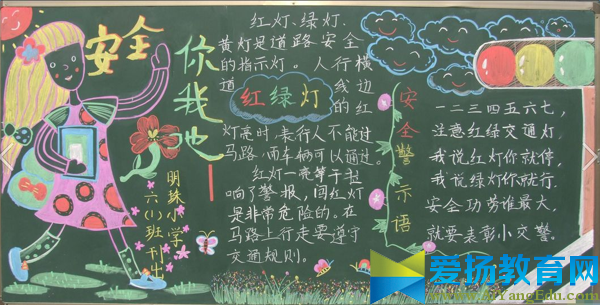 安全
你我他
明珠小学
六(1)班刊出
红灯、绿灯、
黄灯是道路安全
的指示灯。人行横
道 线边
的红
红绿灯
灯亮时,表行人不能过
马路,而车辆可以通过。
红灯一亮等于拉
响了警报,闯红灯
是非常危险的。在
马路上行走要遵守
交通规则。
安全警示语
一二三四五六七,
注意红绿交通灯。
我说红灯你就停,
我说绿灯你就行。
安全功劳谁最大,
就要表彰小交警。
爱扬教育网